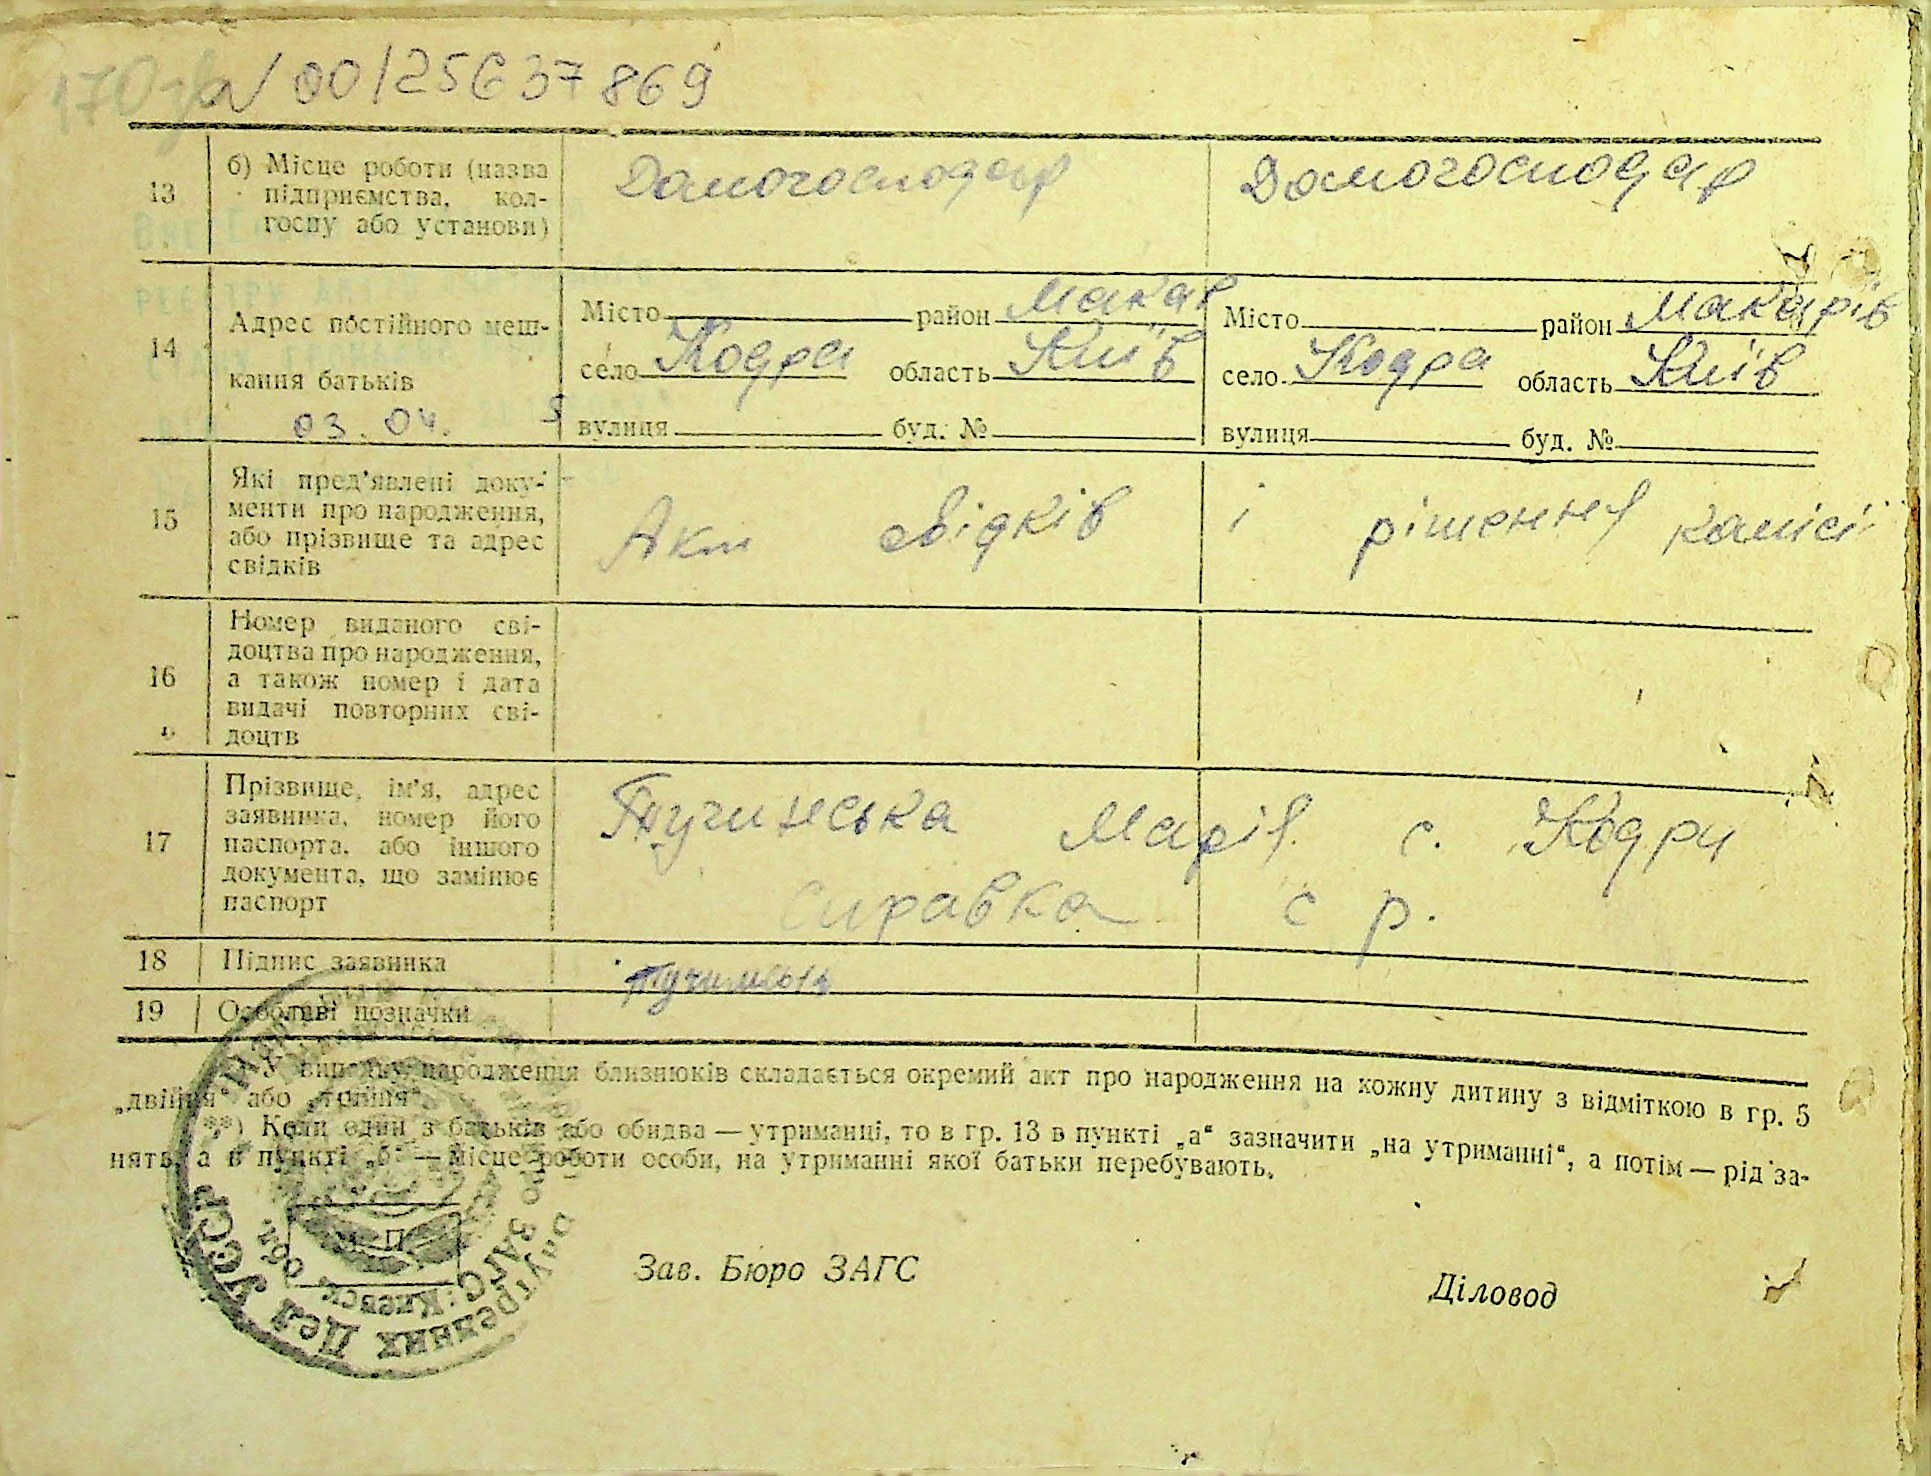 00125637869
13 б) Місце роботи (назва підприємства, кол-госпу або установи) Домогосподар Домогосподар
14 Адрес постійного меш-кання батьків
Місто район Макарів Місто район Макарів
село Кодра область Київ село Кодра область Київ
вулиця буд. № вулиця буд. №
03.04.
15 Які пред'явлені доку-
менти про народження,
або прізвище та адрес
свідків
Акт свідків і рішення комісії
16 Номер виданого сві-
доцтва про народження,
а також номер і дата
видачі повторних сві-
доцтв
17 Прізвище, ім'я, адрес
заявника, номер його
паспорта, або іншого
документа, що замінює
паспорт
Тучинська Марія с. Кодри
справка с р.
18 Підпис заявника
19 Особливі позначки
У випадку народження близнюків складається окремий акт про народження на кожну дитину з відміткою в гр. 5
„двійня“ або „трійня“.
**) Коли один з батьків або обидва — утриманці, то в гр. 13 в пункті „а“ зазначити „на утриманні“, а потім — рід за-
нять, а в пункті „б“ — місце роботи особи, на утриманні якої батьки перебувають.
Зав. Бюро ЗАГС
Діловод
Внутренних Дел УССР
ЗАГС Киевск. обл.